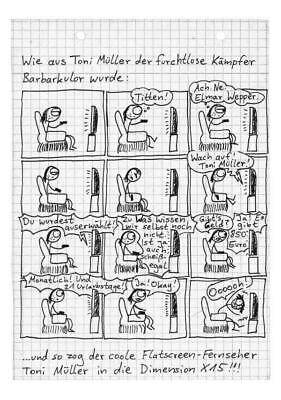 Wie aus Toni Müller der furchtlose Kämpfer
Barbarkulor wurde:
Titten!
Ach. Ne.
Elmar Wepper.
Wach auf,
Toni Müller!
Du wurdest
auserwählt!
Zu was wissen
wir selbst noch
nicht
ist ja
auch
scheiß-
egal!
Gibt's
Geld?
Ja! Es
gibt
850
Euro!
Monatlich! Und
21 Urlaubstage!
Ja! Okay!
Oooooh!
...und so zog der coole Flatscreen-Fernseher
Toni Müller in die Dimension X15!!!